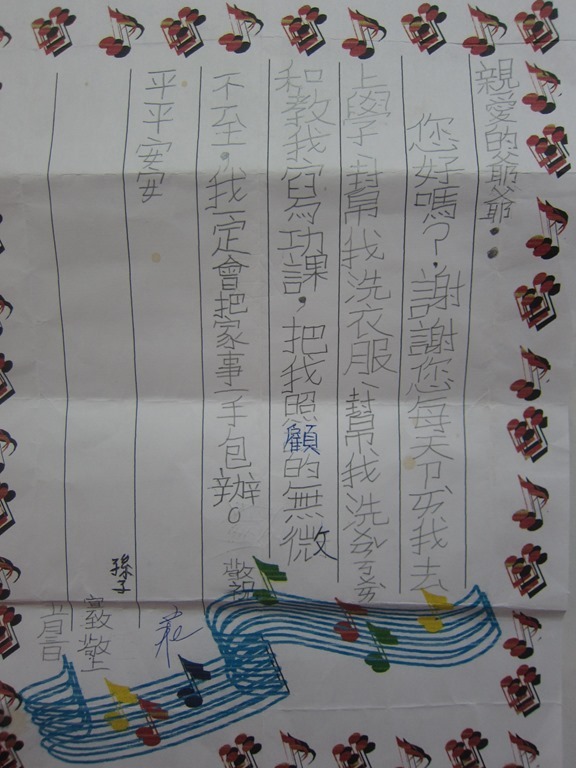 親愛的爺爺：
您好嗎？謝謝您每天ㄗㄞ我去
上學、幫我洗衣服、幫我洗
和教我寫功課，把我照顧的無微
不至，我一定會把家事一手包辦。敬祝
平平安安
孫子